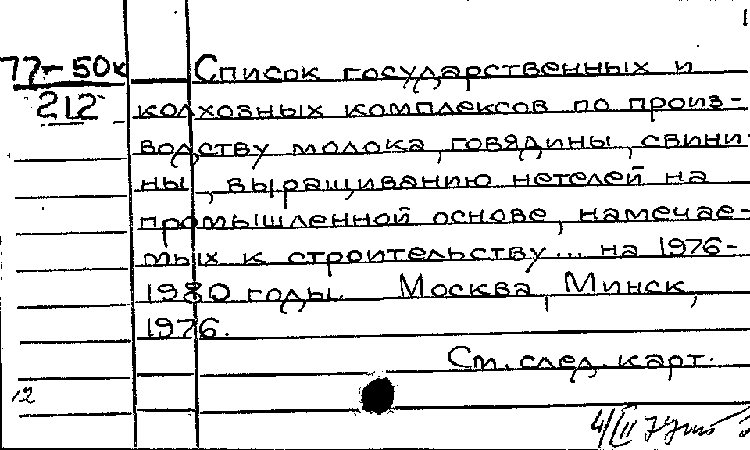 77-50к
212
Список государственных и
колхозных комплексов по произ-
водству молока, говядины, свини-
ны, выращиванию нетелей на
промышленной основе, намечае-
мых к строительству... на 1976-
1980 годы. Москва, Минск,
1976.
См. след. карт.
12
4/II